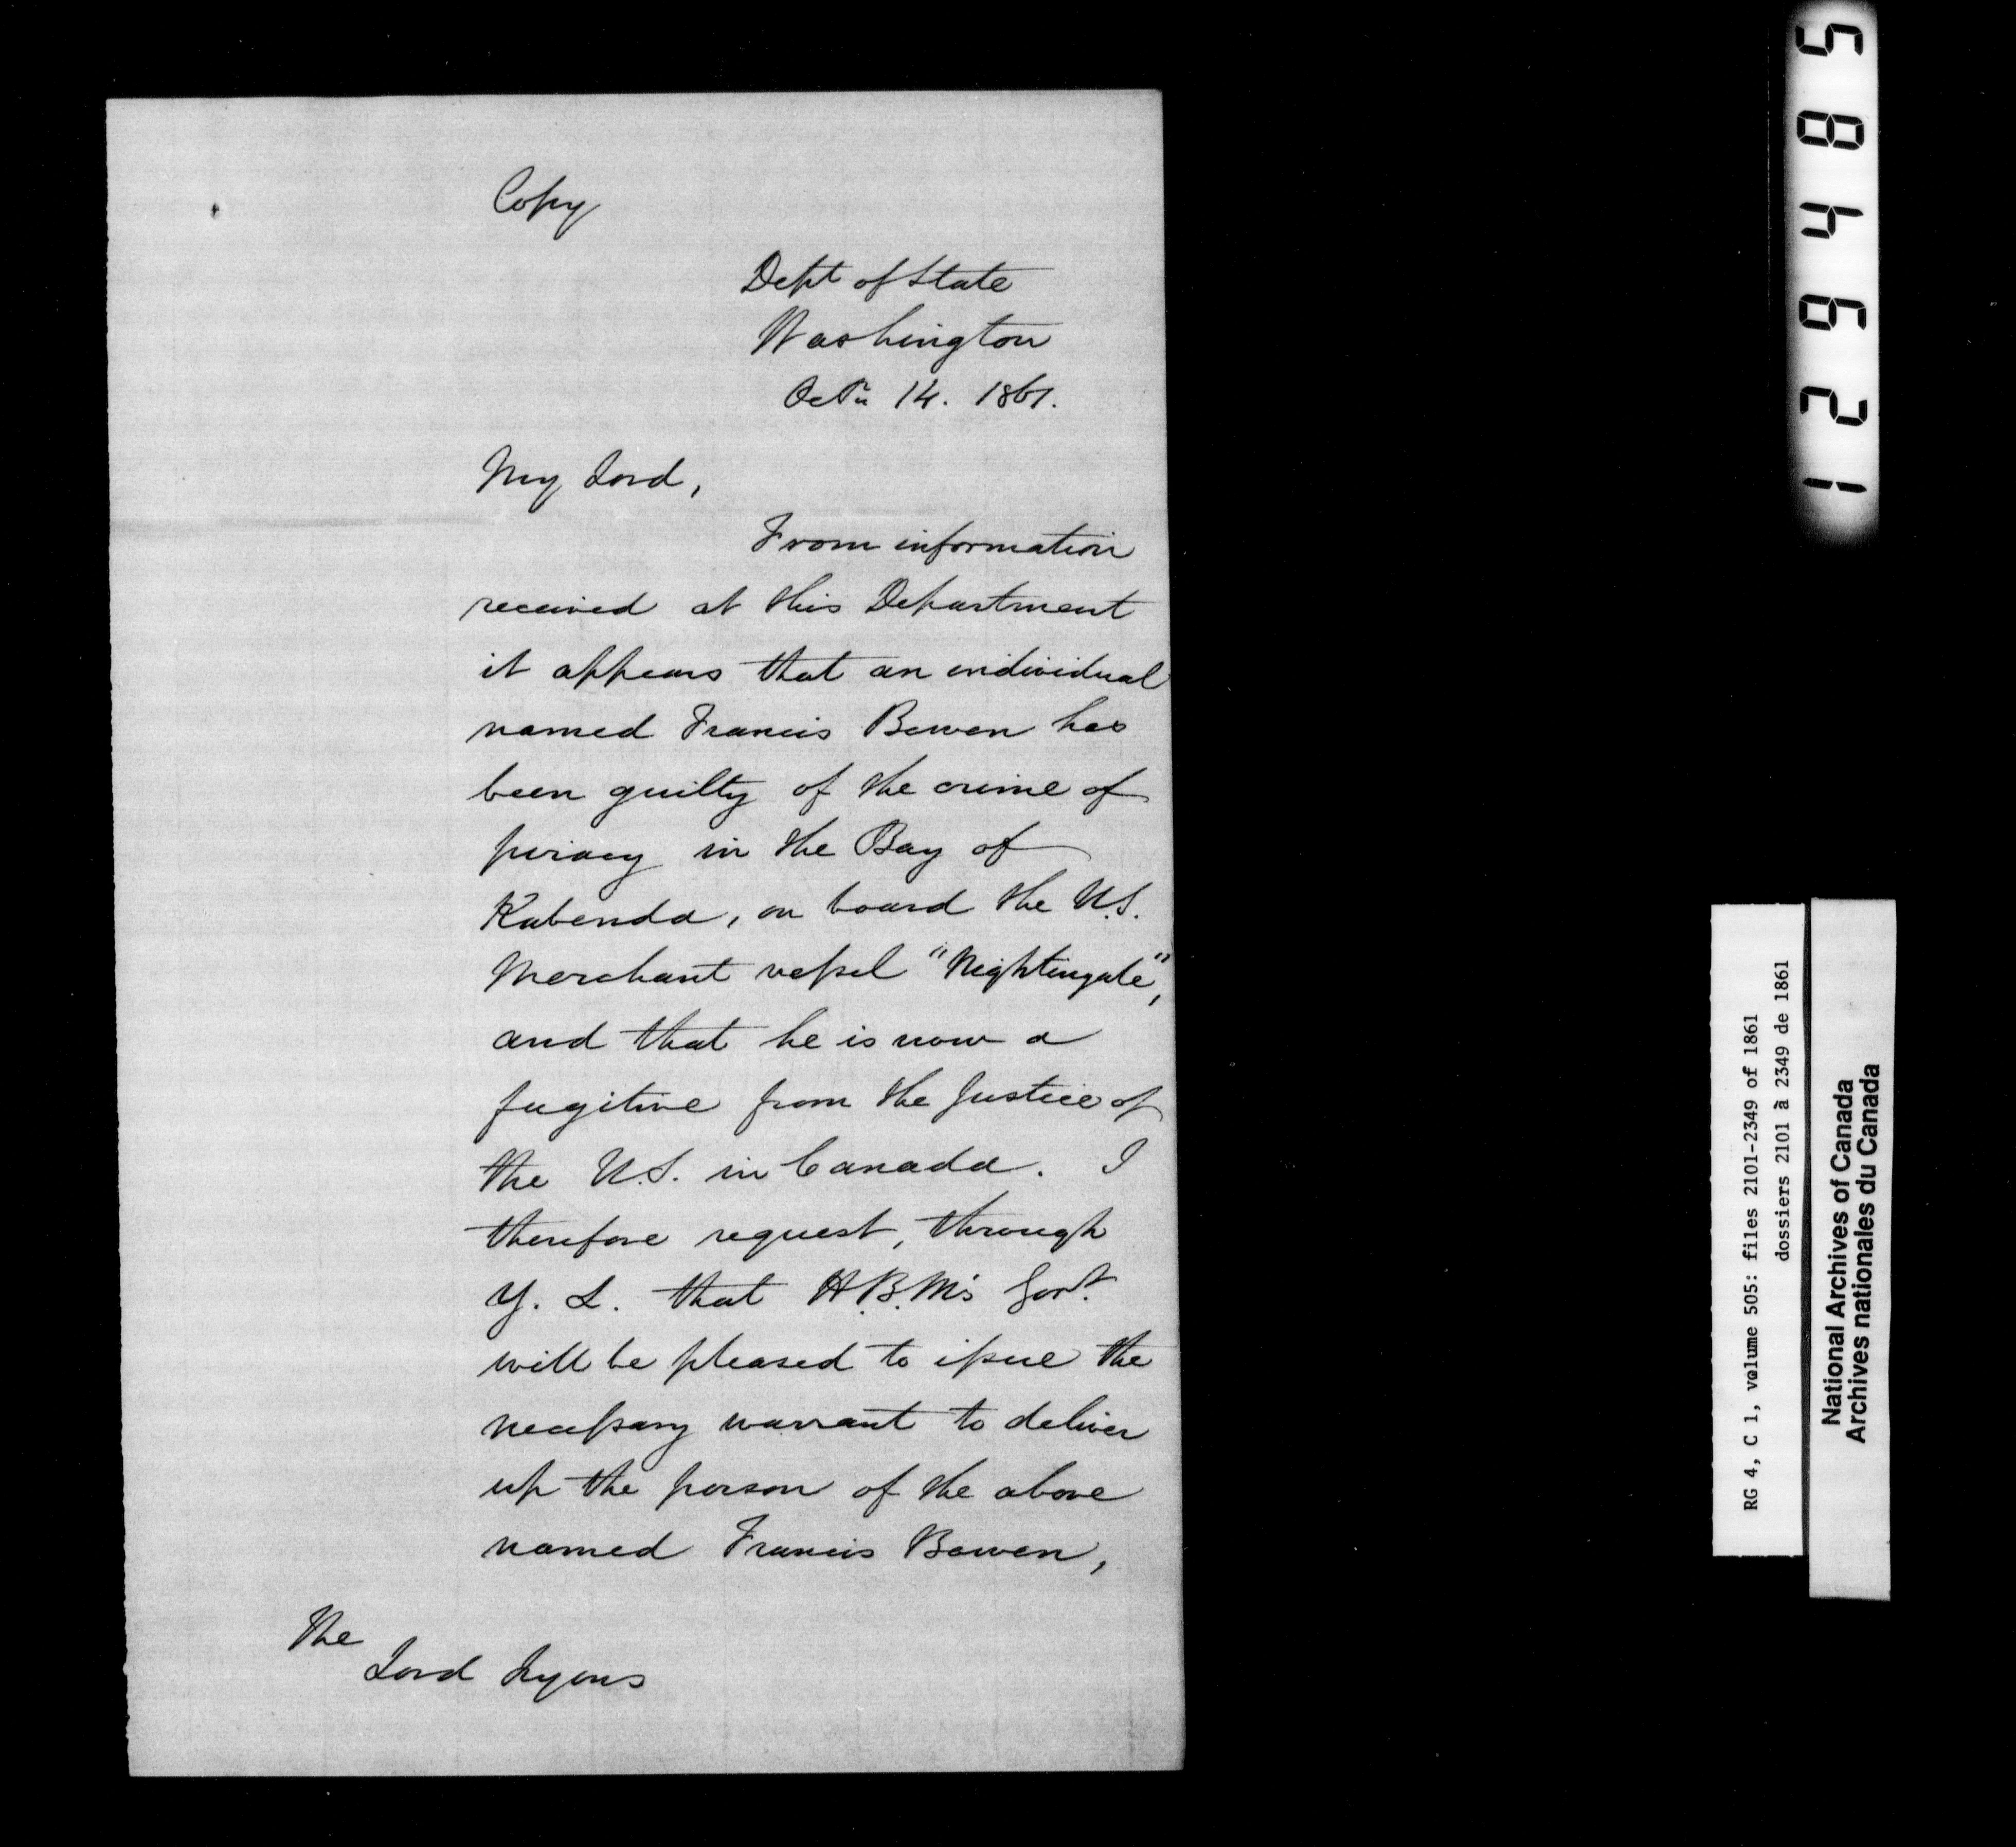 Copy
Dept of State
Washington
Octr 14. 1861.
My Lord,
From information
received at this Department
it appears that an individual
named Francis Bowen has
been guilty of the crime of
piracy in the Bay of
Kabenda, on board the U.S.
Merchant vessel "Nightingale",
and that he is now a
fugitive from the Justice of
the U.S. in Canada. I
therefore request, through
Y. L. that H.B.M's Govt.
will be pleased to issue the
necessary warrant to deliver
up the person of the above
named Francis Bowen,
The
Lord Lyons
129485
RG 4, C 1, volume 505: files 2101-2349 of 1861
dossiers 2101 à 2349 de 1861
National Archives of Canada
Archives nationales du Canada